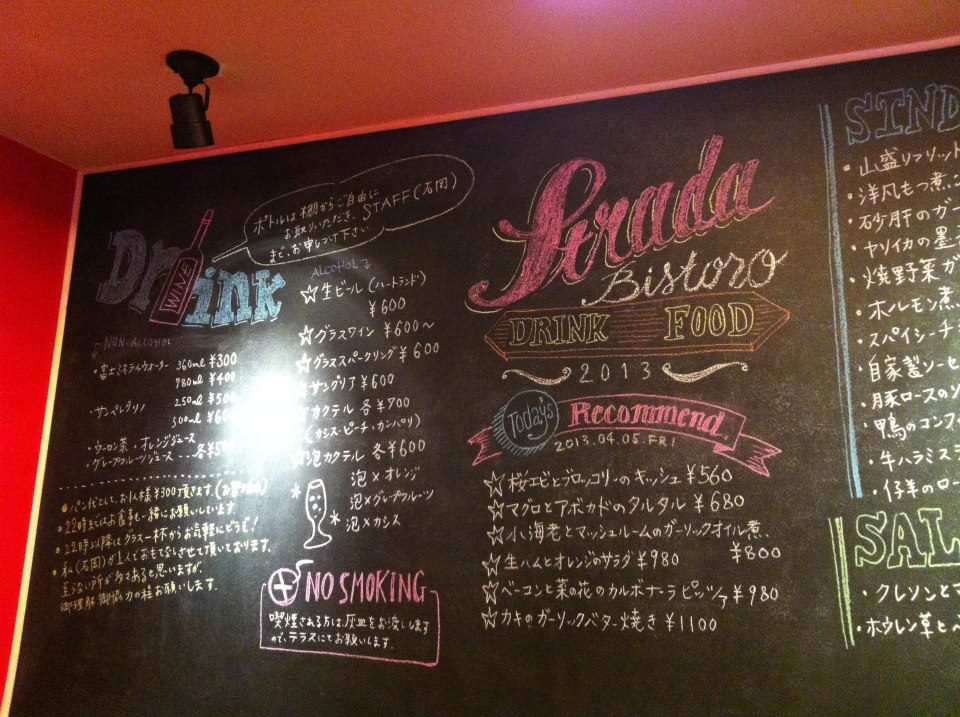 Drink
WINE
ボトルは棚からご自由に
お取りいただき、STAFF(石岡)
まで、お申しつけ下さい
NON-ALCOHOL
・富士ミネラルウォーター 360ml ¥300
780ml ¥400
・サンペレグリノ 250ml ¥500
500ml ¥600
・ウーロン茶・オレンジジュース
・グレープフルーツジュース...各
・パン代として、お1人様¥300頂きます。
・22時まではお食事も一緒にお願いしています。
・22時以降はグラス一杯からお気軽にどうぞ!
・私(石岡)が1人でおもてなしさせて頂いております。
至らない所が多々あると思いますが、
御理解御協力の程お願いします。
ALCOHOL
☆生ビール(ハートランド)
¥600
☆グラスワイン ¥600〜
☆グラススパークリング ¥600
サングリア ¥600
カクテル 各¥700
(カシス・ピーチ・カンパリ)
泡カクテル 各¥600
泡×オレンジ
泡×グレープフルーツ
泡×カシス
NO SMOKING
喫煙される方は、灰皿をお渡しします
ので、テラスにてお願いします。
Strada
Bistoro
DRINK FOOD
2013
Today's Recommend
2013.04.05.FRI
☆桜エビとブロッコリーのキッシュ ¥560
☆マグロとアボカドのタルタル ¥680
☆小海老とマッシュルームのガーリックオイル煮
¥800
☆生ハムとオレンジのサラダ ¥980
☆ベーコンと菜の花のカルボナーラピッツァ ¥980
☆カキのガーリックバター焼き ¥1100
・山盛りフリット
・洋風もつ煮
・砂肝のガー
・ヤリイカの墨
・焼野菜ガ
・ホルモン煮
・スパイシーチ
・自家製ソーセ
・豚ロースのソ
・鴨のコンフ
・牛ハラミス
・仔羊のロー
SAL
・クレソンとマ
・ホウレン草と